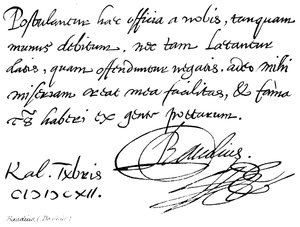 Postulantur hæc officia a nobis, tanquam
munus debitum. nec tam lætantur
datis, quam offenduntur negatis. adeo mihi
miseriam creat mea facilitas, & fama
haberi ex genere poetarum.
Baudius.
Kal. IXbris
CIƆIƆCXII.
Baudius (Dominic)